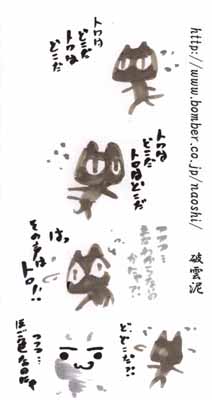 http://www.bomber.co.jp/naoshi/
破雲泥
トロは
どこだ
トロは
どこだ
トロは
どこだ
トロはどこだ
フフフ…
まだわからないの
かニャ?!
はっ
その声は
トロ!!
ど、どこだ?!
フフフ…
ほご色なのにゃ